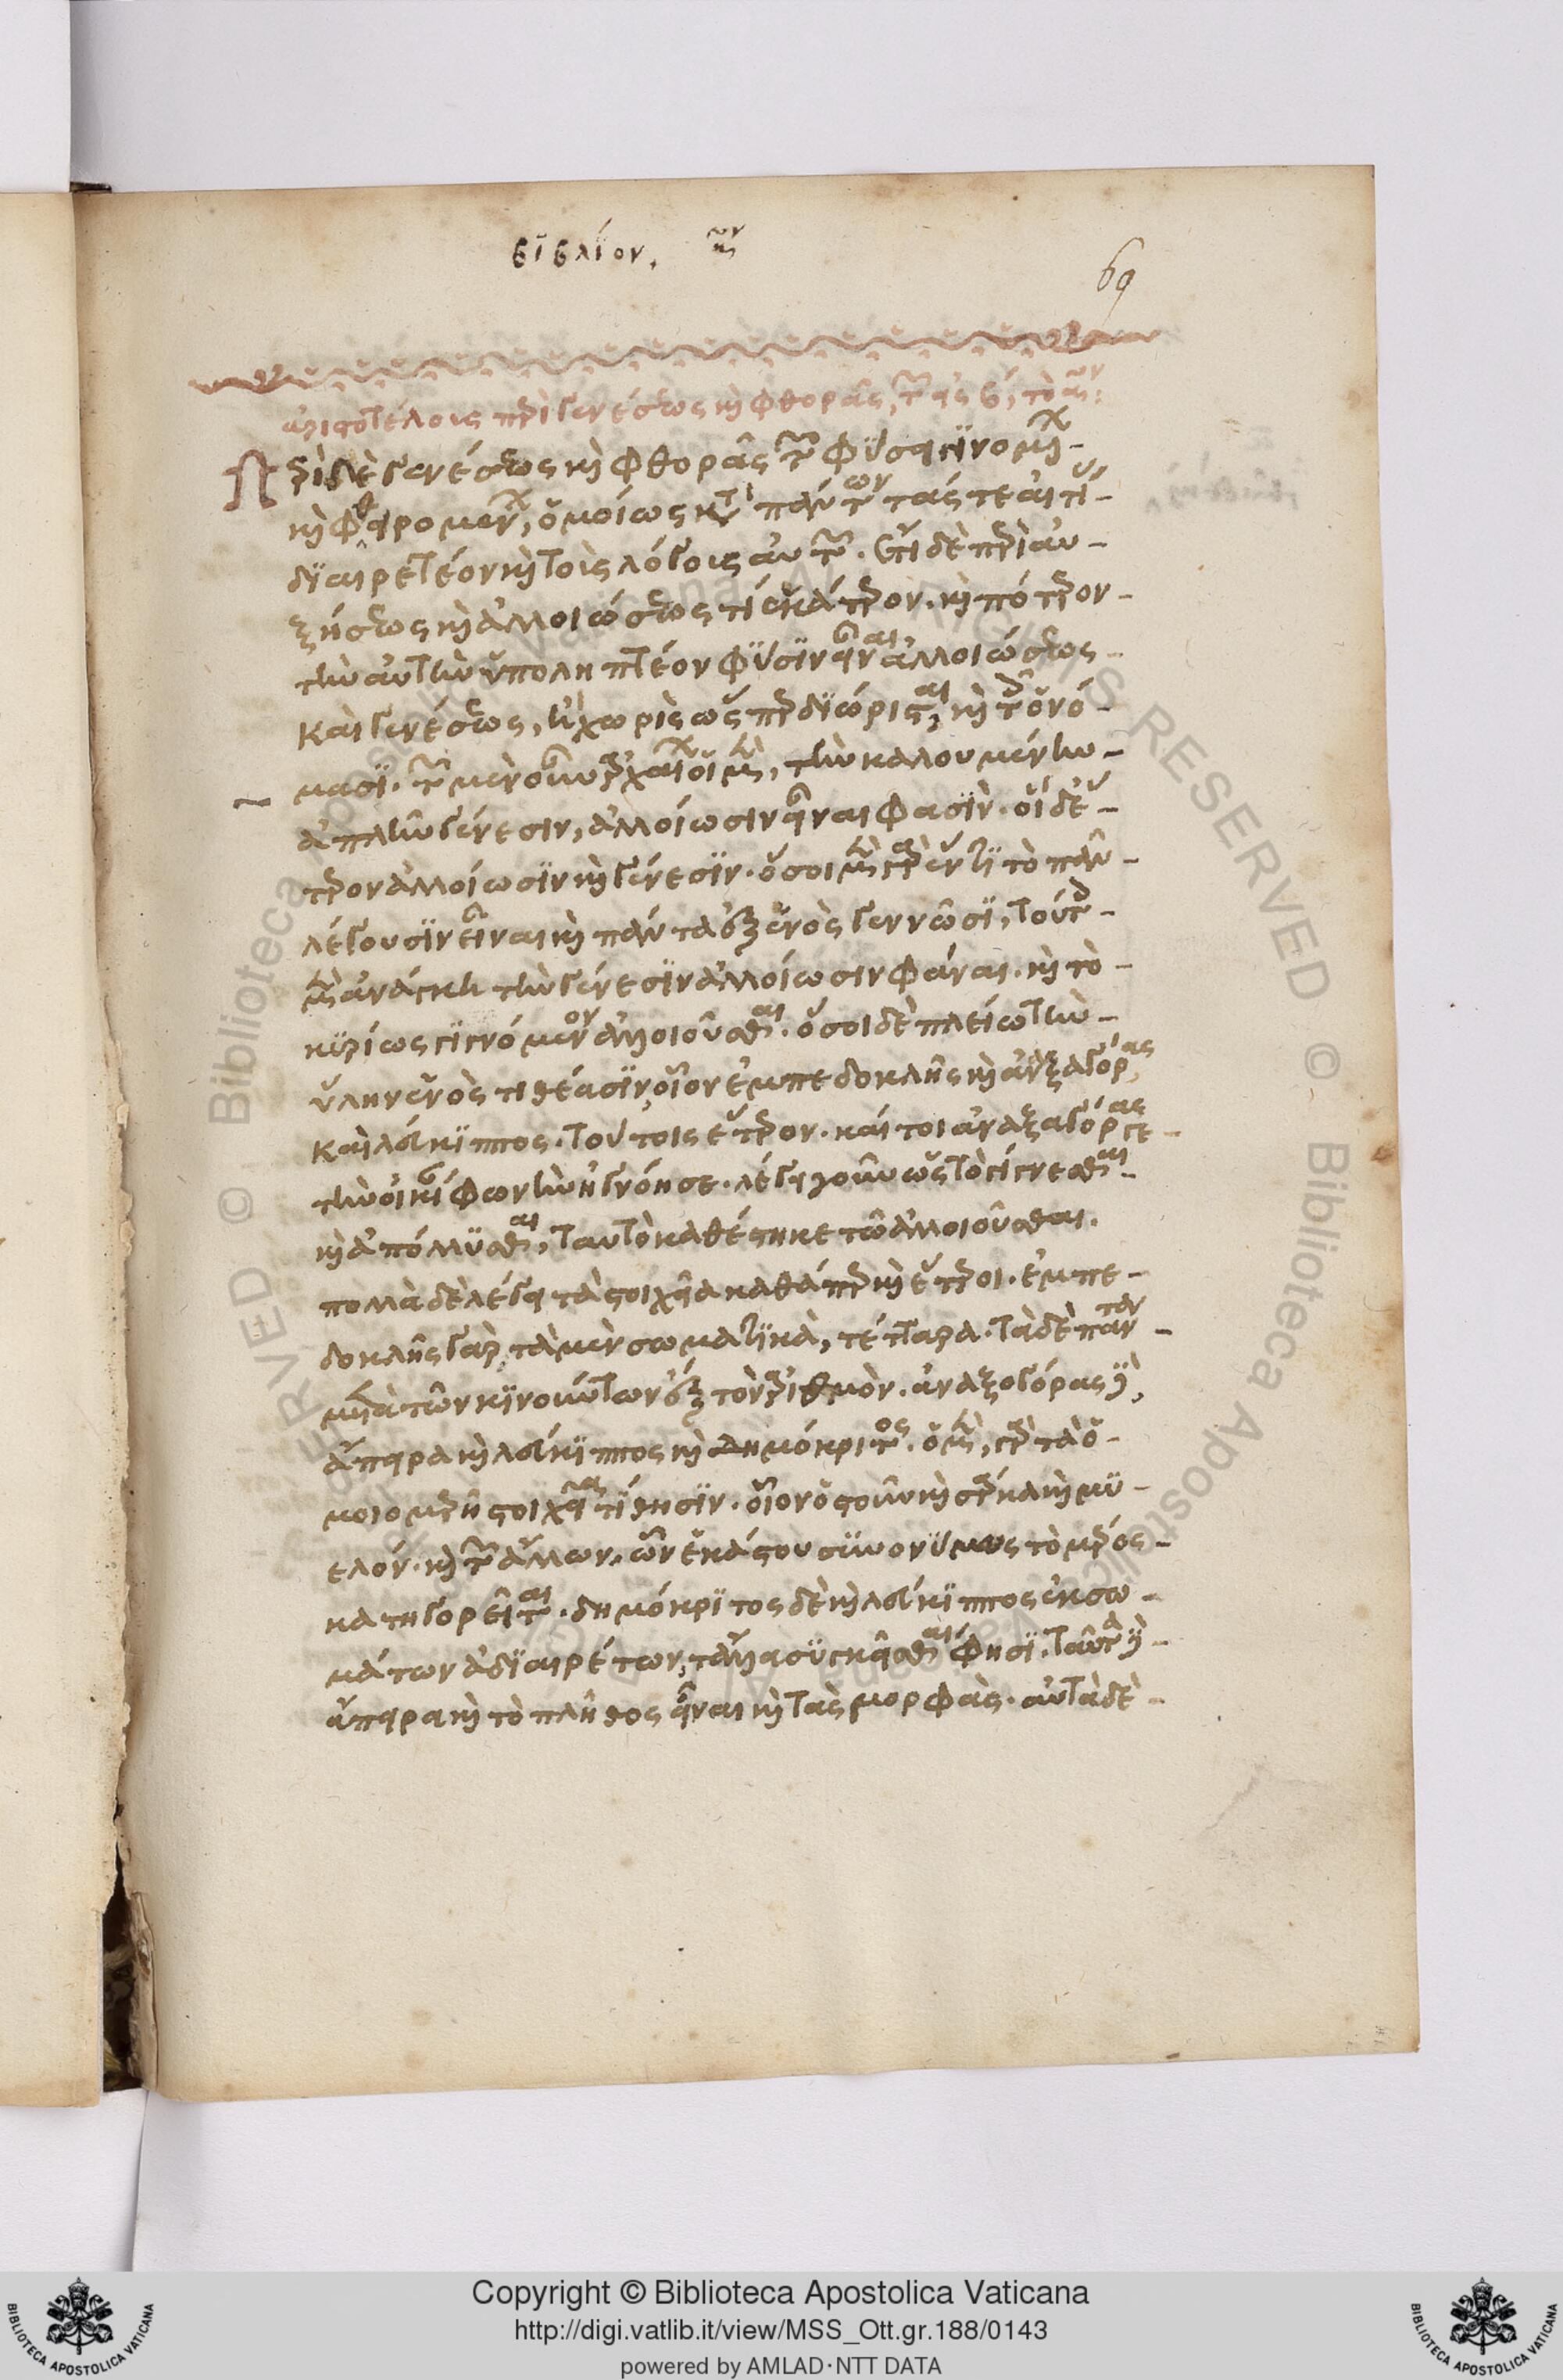 βιβλίον, α^(ον)
69
ἀριστοτέλους περὶ γενέσεως καὶ φθορᾶς, τῶν εἰς β, τὸ α^(ον):
Περὶ δὲ γενέσεως καὶ φθορᾶς τῶν φύσει γινομένων
καὶ φθειρομένων, ὁμοίως κατὰ πάντων τάς τε αἰτίας
διαιρετέον καὶ τοὺς λόγους αὐτῶν. ἔτι δὲ περὶ αὐ-
ξήσεως καὶ ἀλλοιώσεως τί ἑκάτερον. καὶ πότερον
τὴν αὐτὴν ὑποληπτέον φύσιν εἶναι ἀλλοιώσεως
καὶ γενέσεως, ἢ χωρὶς ὥσπερ διώρισται καὶ τοῖς ὀνό-
μασι. τῶν μὲν οὖν ἀρχαίων οἱ μὲν, τὴν καλουμένην
ἁπλῶν γένεσιν, ἀλλοίωσιν εἶναι φασίν. οἱ δ' ἕ-
τερον ἀλλοίωσιν καὶ γένεσιν. ὅσοι μὲν γὰρ ἕν τι τὸ πᾶν
λέγουσιν εἶναι καὶ πάντα ἐξ ἑνὸς γεννῶσι, τούτοις
μὲν ἀνάγκη τὴν γένεσιν ἀλλοίωσιν φάναι. καὶ τὸ
κυρίως γιγνόμενον ἀλλοιοῦσθαι. ὅσοι δὲ πλείω τὴν
ὕλην ἑνὸς τιθέασιν, οἷον ἐμπεδοκλῆς καὶ ἀναξαγόρας
καὶ λεύκιππος. τούτοις ἕτερον. καίτοι ἀναξαγόρας γε
τὴν οἰκείαν φωνὴν ἠγνόησε. λέγει γοῦν ὡς τὸ γίγνεσθαι
καὶ ἀπόλλυσθαι, ταυτὸ καθέστηκε τῷ ἀλλοιοῦσθαι.
πολλὰ δὲ λέγει τὰ στοιχεῖα καθάπερ καὶ ἕτεροι. ἐμπε-
δοκλῆς γὰρ, τὰ μὲν σωματικὰ, τέτταρα. τὰ δὲ πάντα
μετὰ τῶν κινούντων ἓξ τὸν ἀριθμόν. ἀναξαγόρας δὲ,
ἄπειρα καὶ λεύκιππος καὶ δημόκριτος. ὁ μὲν, γὰρ τὰ ὁ-
μοιομερῆ στοιχεῖα τίθησιν. οἷον ὀστοῦν καὶ σάρκα καὶ μυ-
ελόν. καὶ τῶν ἄλλων, ὧν ἑκάστου συνωνύμως τὸ μέρος
κατηγορεῖται. δημόκριτος δὲ καὶ λεύκιππος ἐκ σω-
μάτων ἀδιαιρέτων, τἄλλα συγκεῖσθαι φησί. ταῦτα δὲ
ἄπειρα καὶ τὸ πλῆθος εἶναι καὶ τὰς μορφάς. αὐτὰ δὲ
Copyright © Biblioteca Apostolica Vaticana
http://digi.vatlib.it/view/MSS_Ott.gr.188/0143
powered by AMLAD·NTT DATA